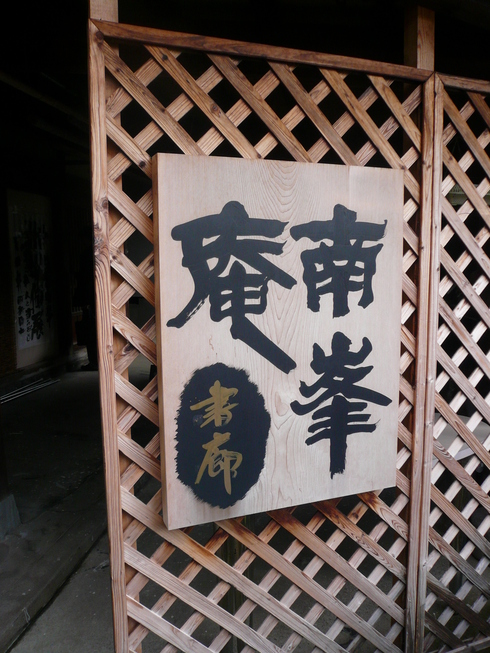 南峯
庵
書廊